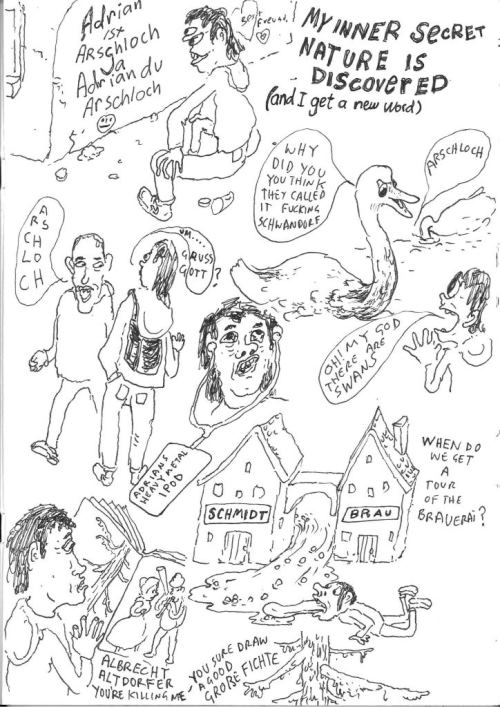 Adrian
ist
ARSChloch
Ja
Adrian du
Arschloch
MY INNER SECRET
NATURE IS
DISCOVERED
(and I get a new word)
WHY
DID YOU
YOU THINK
THEY CALLED
IT FUCKING
SCHWANDORF
ARSCHLOCH
A
RS
CH
LO
CH
UM...
GRUSS
GOTT?
OH!! MY GOD
THERE ARE
SWANS
ADRIANS
HEAVY METAL
IPOD
SCHMIDT
BRAU
WHEN DO
WE GET
A
TOUR
OF THE
BRAUERAI?
ALBRECHT
ALTDORFER
YOU'RE KILLING ME
YOU SURE DRAW
A GOOD
GROßE FICHTE